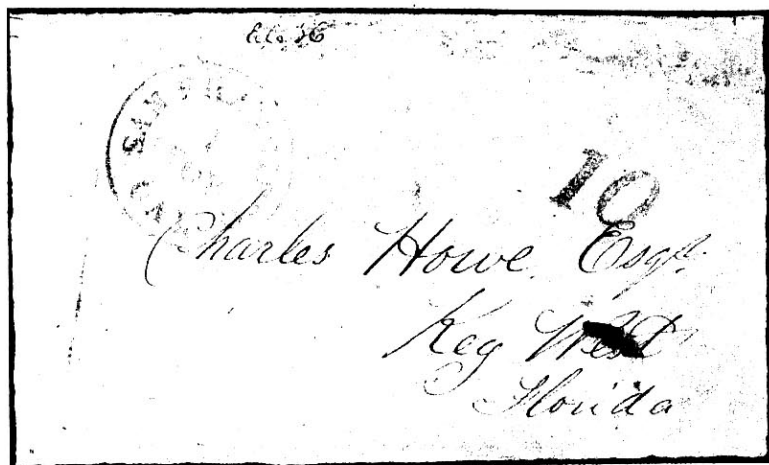 SAN
10
Charles Howe Esqr.
Key West
Florida